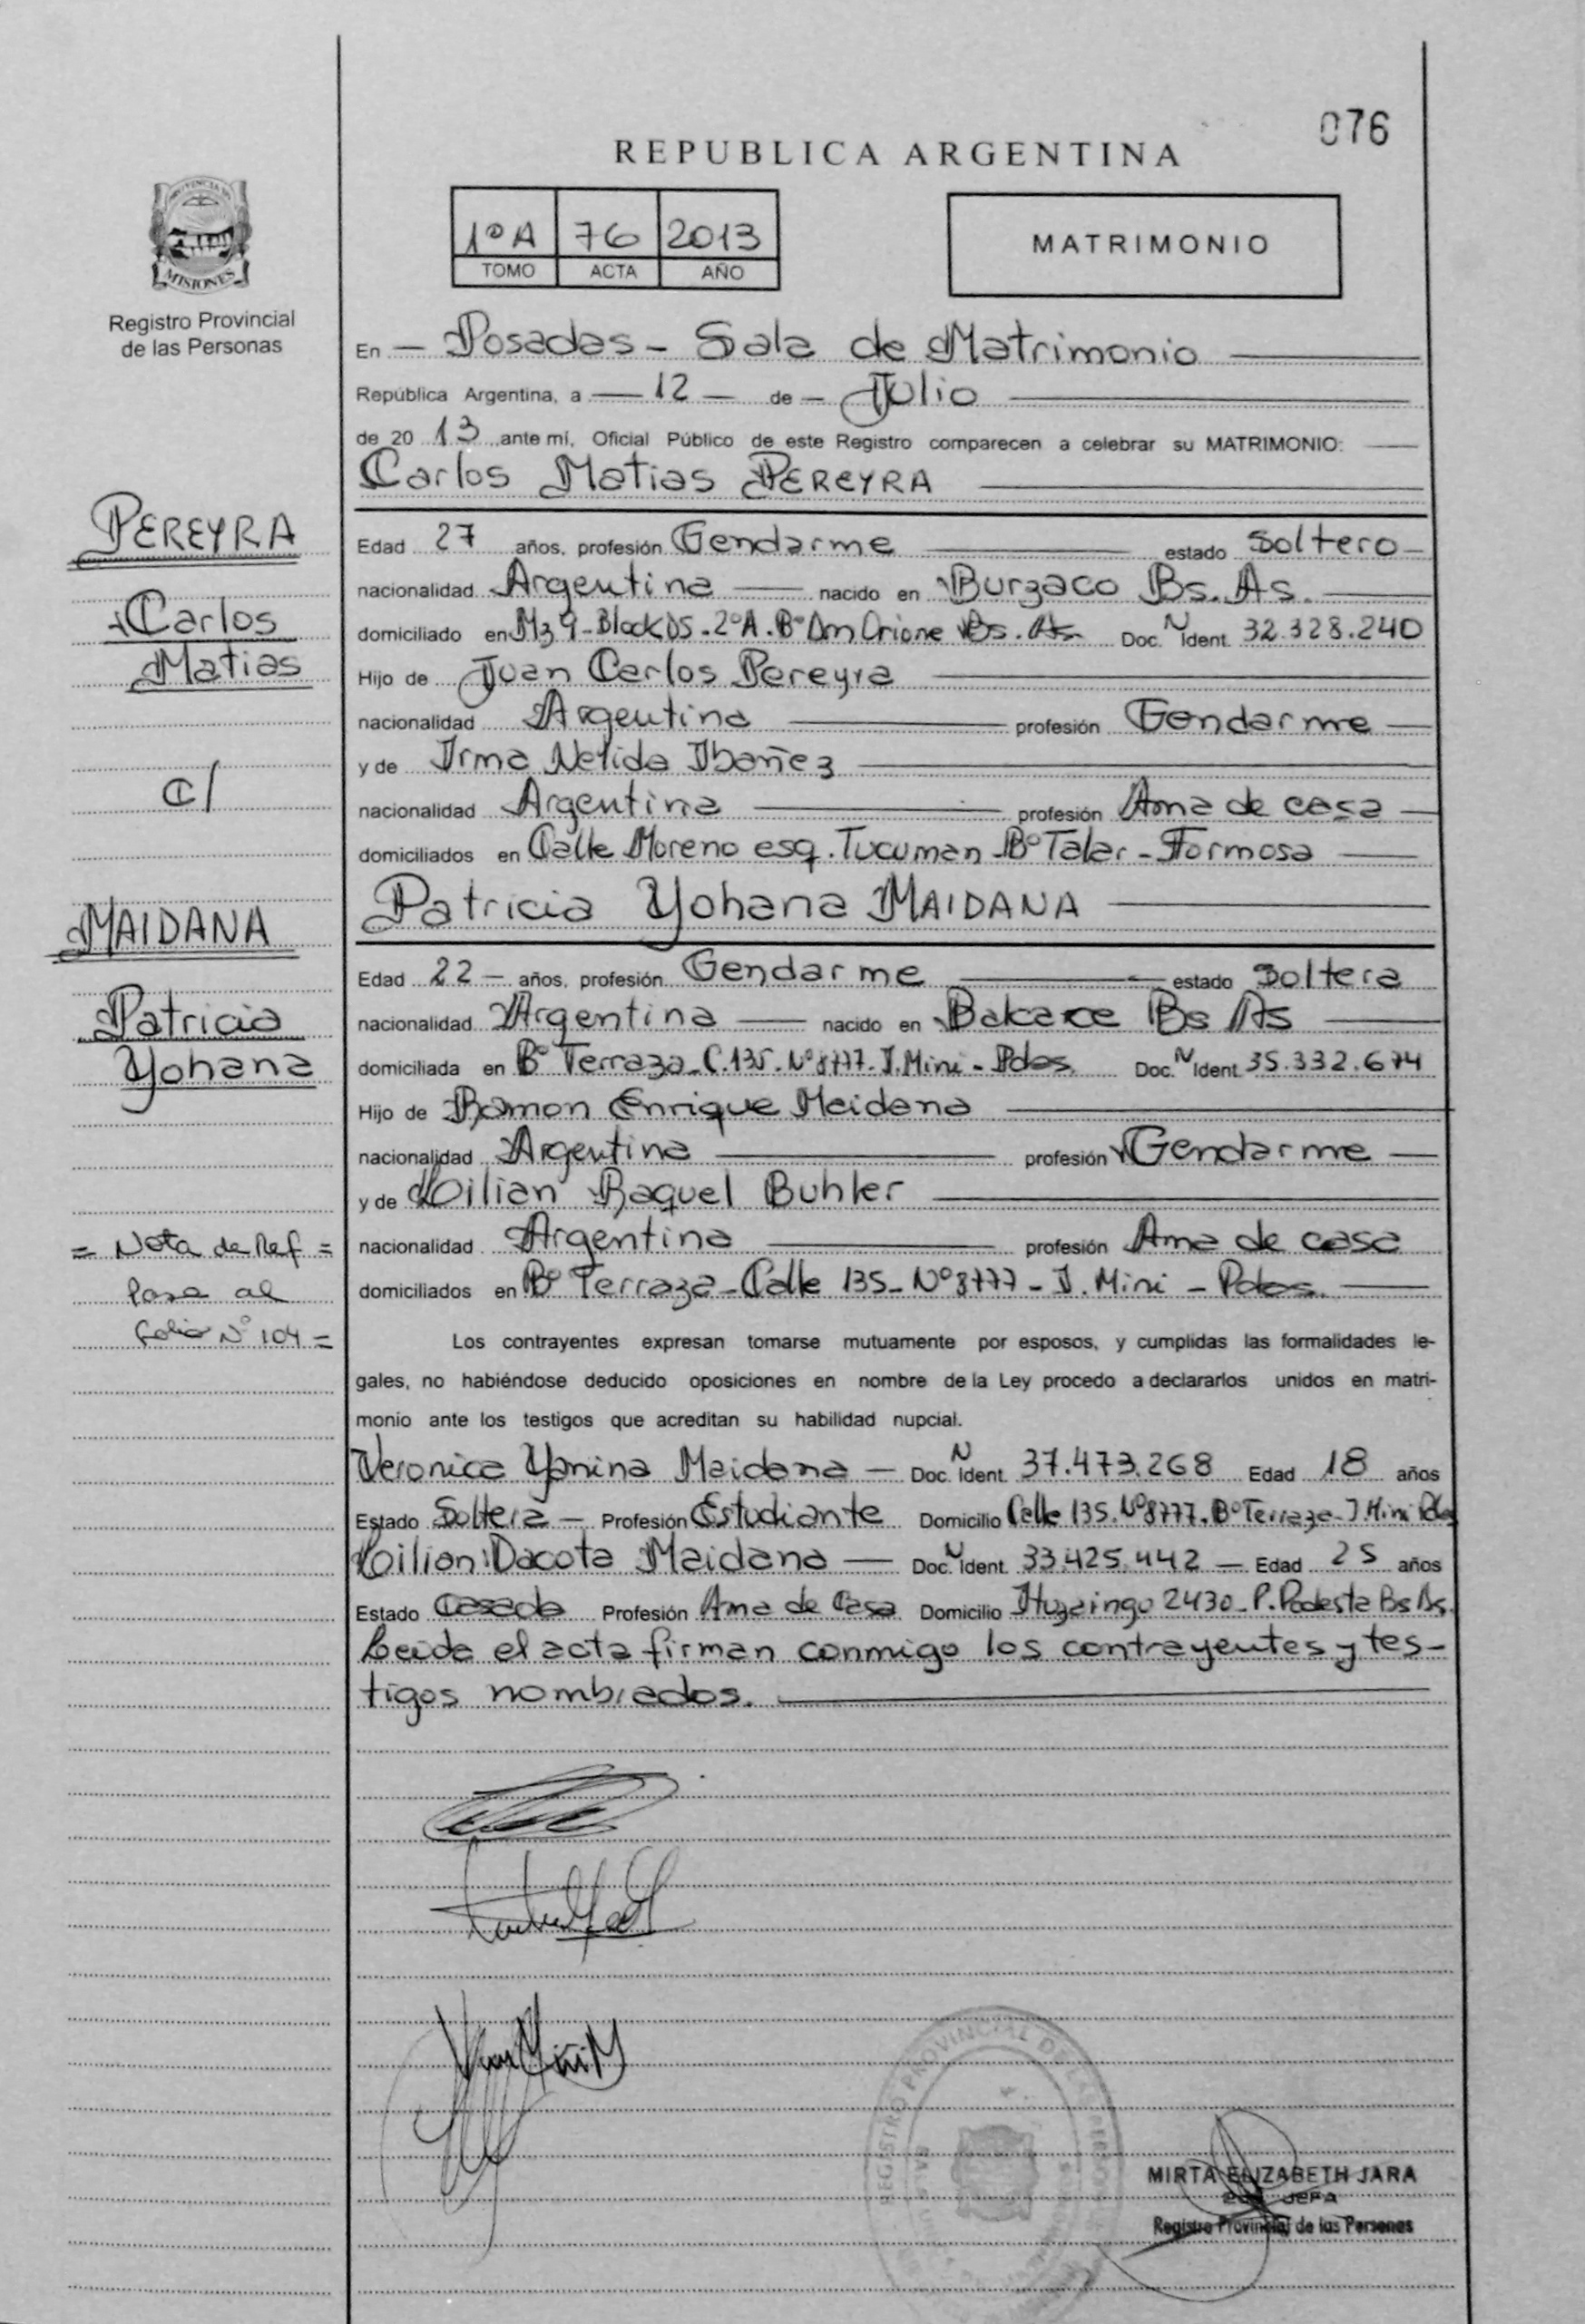 076
REPUBLICA ARGENTINA
1º A 76 2013
TOMO ACTA AÑO
MATRIMONIO
MISIONES
Registro Provincial
de las Personas
En - Posadas - Sala de Matrimonio
República Argentina, a - 12 - de - Julio
de 20 13 ante mí, Oficial Público de este Registro comparecen a celebrar su MATRIMONIO:
Carlos Matias PEREYRA
PEREYRA
Carlos
Matias
C/
MAIDANA
Patricia
Yohana
= Nota de Ref =
Pasa al
folio Nº 104 =
Edad 27 años, profesión Gendarme estado Soltero
nacionalidad Argentina nacido en Burzaco Bs. As.
domiciliado en Mz 9 - Block DS - 2º A. Bº Don Orione Bs. As. Doc. N Ident. 32.328.240
Hijo de Juan Carlos Pereyra
nacionalidad Argentina profesión Gendarme
y de Irma Nelida Ibañez
nacionalidad Argentina profesión Ama de casa
domiciliados en Calle Moreno esq. Tucuman - Bº Talar - Formosa
Patricia Yohana MAIDANA
Edad 22 - años, profesión Gendarme estado Soltera
nacionalidad Argentina nacido en Bs As
domiciliada en Bº Terraza - C. 135 - Nº 8777 - I. Mini - Pdas. Doc. N Ident. 35.332.674
Hijo de Ramon Enrique Maidana
nacionalidad Argentina profesión Gendarme
y de Lilian Raquel Buhler
nacionalidad Argentina profesión Ama de casa
domiciliados en Bº Terraza - Calle 135 - Nº 8777 - I. Mini - Pdas.
Los contrayentes expresan tomarse mutuamente por esposos, y cumplidas las formalidades le-
gales, no habiéndose deducido oposiciones en nombre de la Ley procedo a declararlos unidos en matri-
monio ante los testigos que acreditan su habilidad nupcial.
Veronica Yanina Maidana - Doc. N Ident. 37.473.268 Edad 18 años
Estado Soltera - Profesión Estudiante Domicilio Calle 135. Nº 8777. Bº Terraza - I. Mini Pdas
Lilian Dacota Maidana - Doc. N Ident. 33.425.442 - Edad 25 años
Estado Casada Profesión Ama de Casa Domicilio Ituzaingo 2430 - P. Podesta Bs As.
Leida el acta firman conmigo los contrayentes y tes-
tigos nombrados.
REGISTRO PROVINCIAL DE LAS PERSONAS
MIRTA ELIZABETH JARA
JEFA
Registro Provincial de las Personas